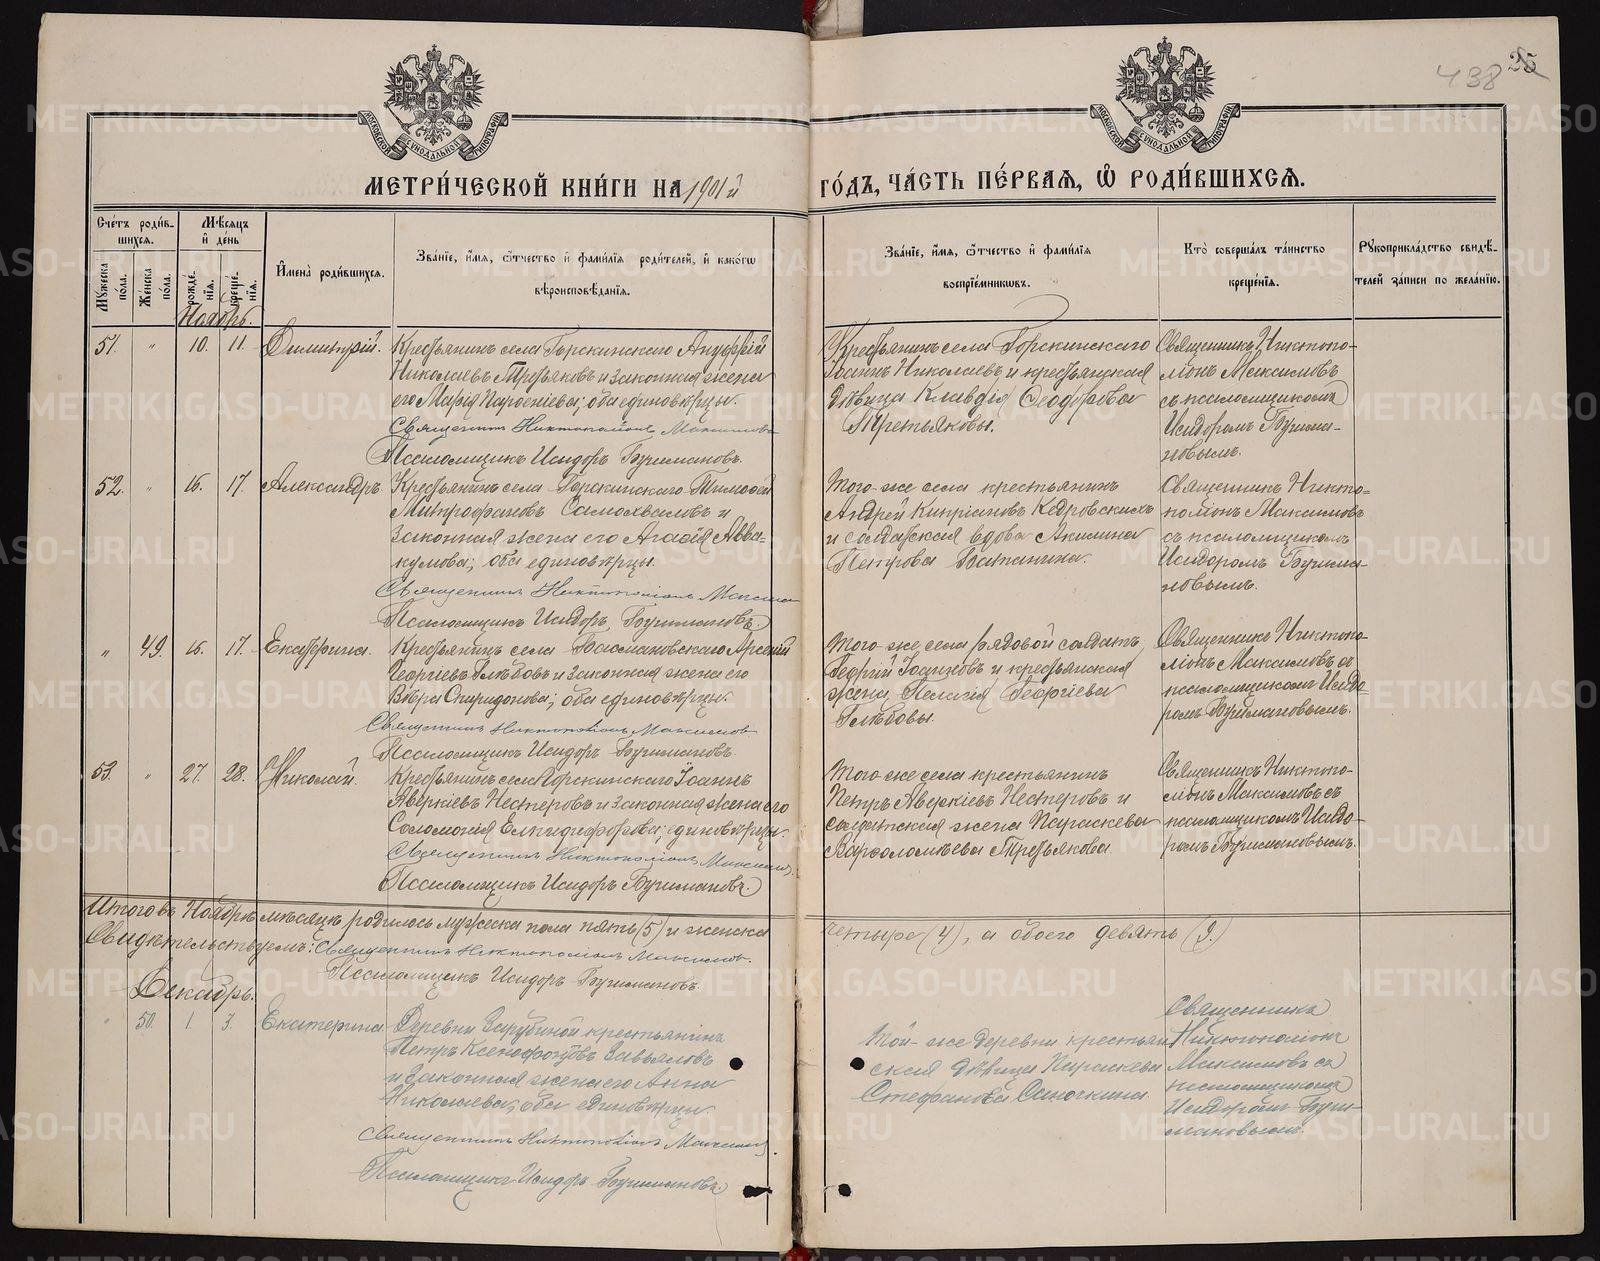 438 26
МОСКОВСКОЙ СѴНОДАЛЬНОЙ ТИПОГРАФІИ
МОСКОВСКОЙ СѴНОДАЛЬНОЙ ТИПОГРАФІИ
МЕТРИ́ЧЕСКОЙ КНИ́ГИ НА 1901й ГО́ДЪ, ЧА́СТЬ ПЕ́РВАЯ, Ѡ҆ РОДИ́ВШИХСѦ.
Сче́тъ роди́в-
шихся.
Мѣ́сяцъ
и҆ де́нь
Му́жеска по́ла.
Же́нска по́ла.
рожде́-нїѧ.
креще́-нїѧ.
И҆мена̀ роди́вшихся.
Зва́нїе, и҆́мѧ, ѻ҆́тчество и҆ фами́лїѧ роди́телей, и҆ како́гѡ
вѣроисповѣ́данїѧ.
Зва́нїе, и҆́мѧ, ѻ҆́тчество и҆ фами́лїѧ
воспрїе́мникѡвъ.
Кто̀ соверша́лъ та́инство
креще́нїѧ.
Рꙋкоприкла́дство свидѣ́-
телей за́писи по жела́нїю.
Ноябрь.
51. " 10. 11. Димитрій.
Крестьянинъ села Горскинскаго Ануфрій
Николаевъ Третьяковъ и законная жена
его Марія Парѳеніева; оба единовѣрцы.
Священникъ Никтополіонъ Максимовъ
Псаломщикъ Исидоръ Бушмановъ.
Крестьянинъ села Горскинскаго
Іоаннъ Николаевъ и крестьянская
дѣвица Клавдія Ѳеодорова
Третьяковы.
Священникъ Никтопо-
ліонъ Максимовъ
съ псаломщикомъ
Исидоромъ Бушма-
новымъ.
52. " 16. 17. Александръ
Крестьянинъ села Горскинскаго Тимоѳей
Митрофановъ Самохваловъ и
законная жена его Агаѳія Авва-
кумова; оба единовѣрцы.
Священникъ Никтополіонъ Максимов
Псаломщикъ Исидоръ Бушмановъ.
Того-же села крестьянинъ
Андрей Кипріановъ Кедровскихъ
и солдатская вдова Акилина
Петрова Батанина.
Священникъ Никто-
поліонъ Максимовъ
съ псаломщикомъ
Исидоромъ Бушма-
новымъ.
" 49. 16. 17. Екатерина.
Крестьянинъ села Басмановскаго Арсеній
Георгіевъ Глѣбовъ и законная жена его
Вѣра Спиридонова; оба единовѣрцы.
Священникъ Никтополіонъ Максимов
Псаломщикъ Исидоръ Бушмановъ
Того-же села рядовой солдатъ
Георгій и крестьянская
жена Пелагія Георгіева
Глѣбовы.
Священникъ Никтопо-
ліонъ Максимовъ съ
псаломщикомъ Исидо-
ромъ Бушмановымъ.
53. " 27. 28. Николай.
Крестьянинъ села Горскинскаго Іоаннъ
Аверкіевъ Нестеровъ и законная жена его
Соломонія Елпидифорова; единовѣрцы.
Священникъ Никтополіонъ Максимов.
Псаломщикъ Исидоръ Бушмановъ.
Того-же села крестьянинъ
Петръ Аверкіевъ Нестеровъ и
солдатская жена Параскева
Варѳоломѣева Третьякова.
Священникъ Никтопо-
ліонъ Максимовъ съ
псаломщикомъ Исидо-
ромъ Бушмановымъ.
Итого въ Ноябрѣ мѣсяцѣ родилось мужеска пола пять (5) и женска четыре (4), а обоего девять (9.)
Свидѣтельствуемъ: Священникъ Никтополіонъ Максимов.
Псаломщикъ Исидоръ Бушмановъ.
Декабрь.
" 50. 1. 3. Екатерина
Деревни Зарубиной крестьянинъ
Петръ Ксенофонтовъ Завьяловъ
и законная жена его Анна
Николаева; оба единовѣрцы.
Священникъ Никтополіонъ Максимов.
Псаломщикъ Исидоръ Бушмановъ.
Той-же деревни крестьян
ская дѣвица Параскева
Стефанова Саночкина.
Священникъ
Никтополіонъ
Максимовъ съ
псаломщикомъ
Исидоромъ Буш-
мановымъ.
METRIKI.GASO-URAL.RU